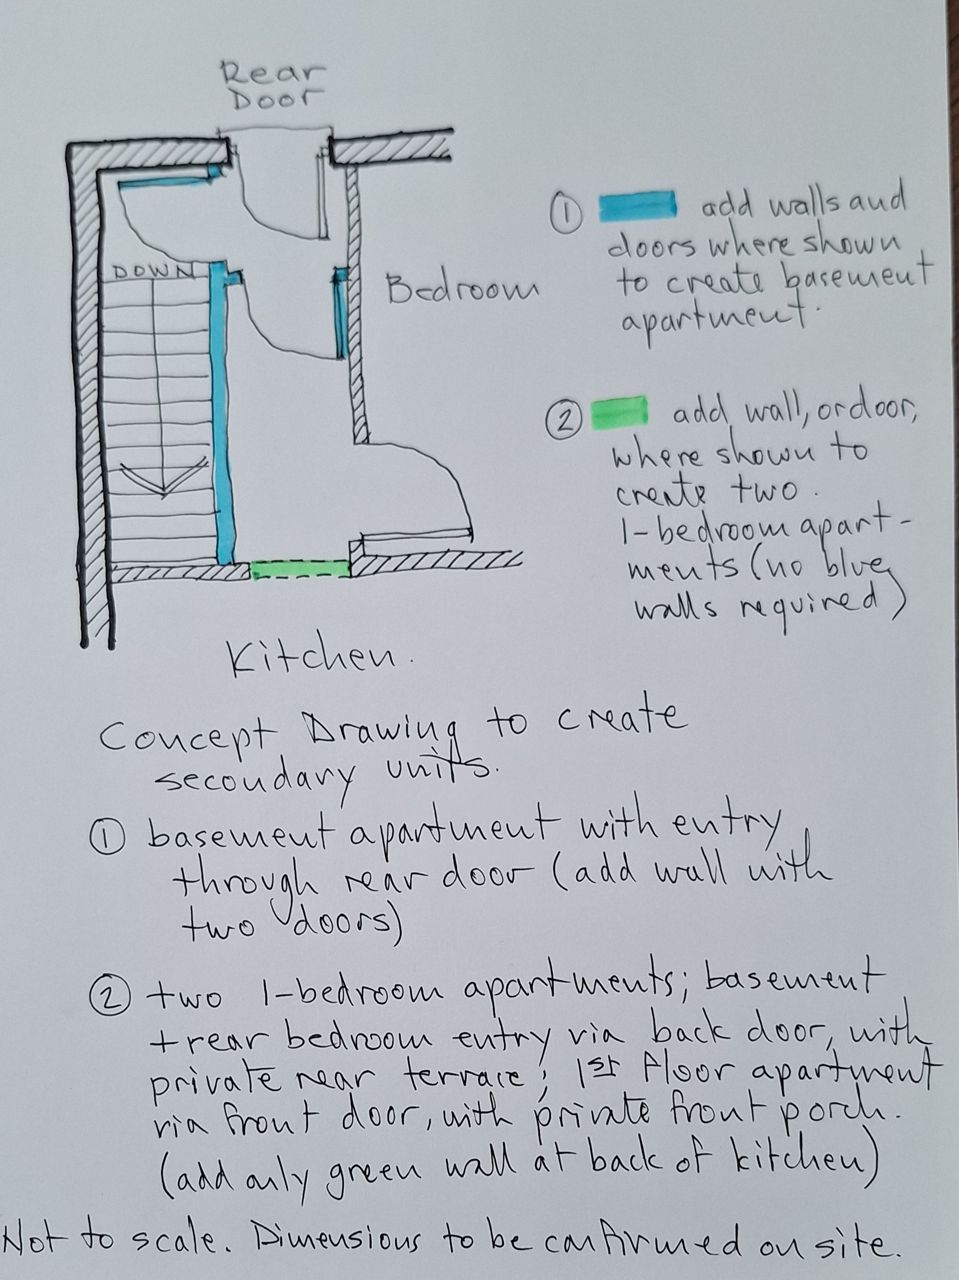 Rear
Door
DOWN
Bedroom
Kitchen.
① add walls and
doors where shown
to create basement
apartment.
② add wall, or door,
where shown to
create two
1-bedroom apart-
ments (no blue
walls required)
Concept Drawing to create
secondary units.
① basement apartment with entry
through rear door (add wall with
two doors)
② two 1-bedroom apartments; basement
+ rear bedroom entry via back door, with
private rear terrace; 1ST Floor apartment
via front door, with private front porch.
(add only green wall at back of kitchen)
Not to scale. Dimensions to be confirmed on site.